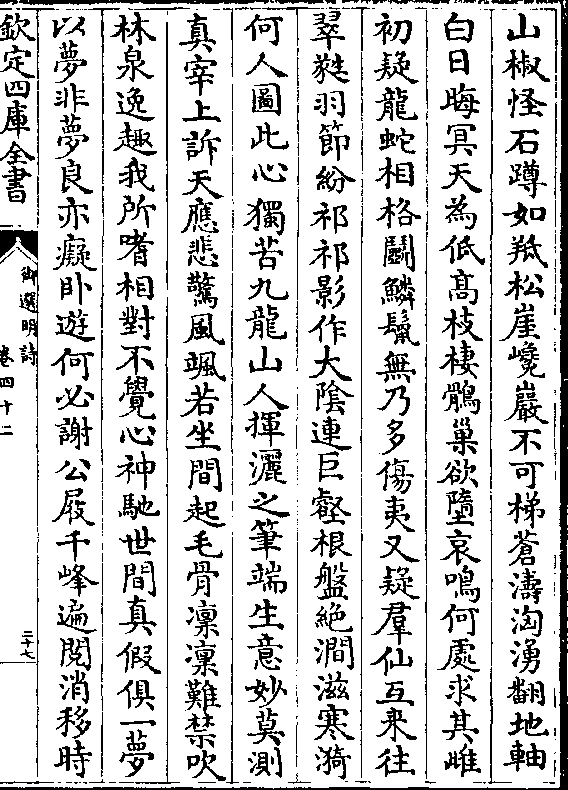 山椒怪石蹲如羆松崖巉巖不可梯蒼濤洶湧翻地軸
白日晦冥天為低髙枝棲鶻巢欲墮哀鳴何處求其雌
初疑龍蛇相格鬭鱗鬛無乃多傷夷又疑羣仙互来往
翠㲯羽節紛祁祁影作大陰連巨壑根盤絶澗滋寒漪
何人圖此心獨苦九龍山人揮灑之筆端生意妙莫測
真宰上訴天應悲驚風颯若坐間起毛骨凜凜難禁吹
林泉逸趣我所嗜相對不覺心神馳世間真假俱一夢
以夢非夢良亦癡卧遊何必謝公屐千峰遍閲消移時
欽定四庫全書
御選明詩
卷四十二
三十七